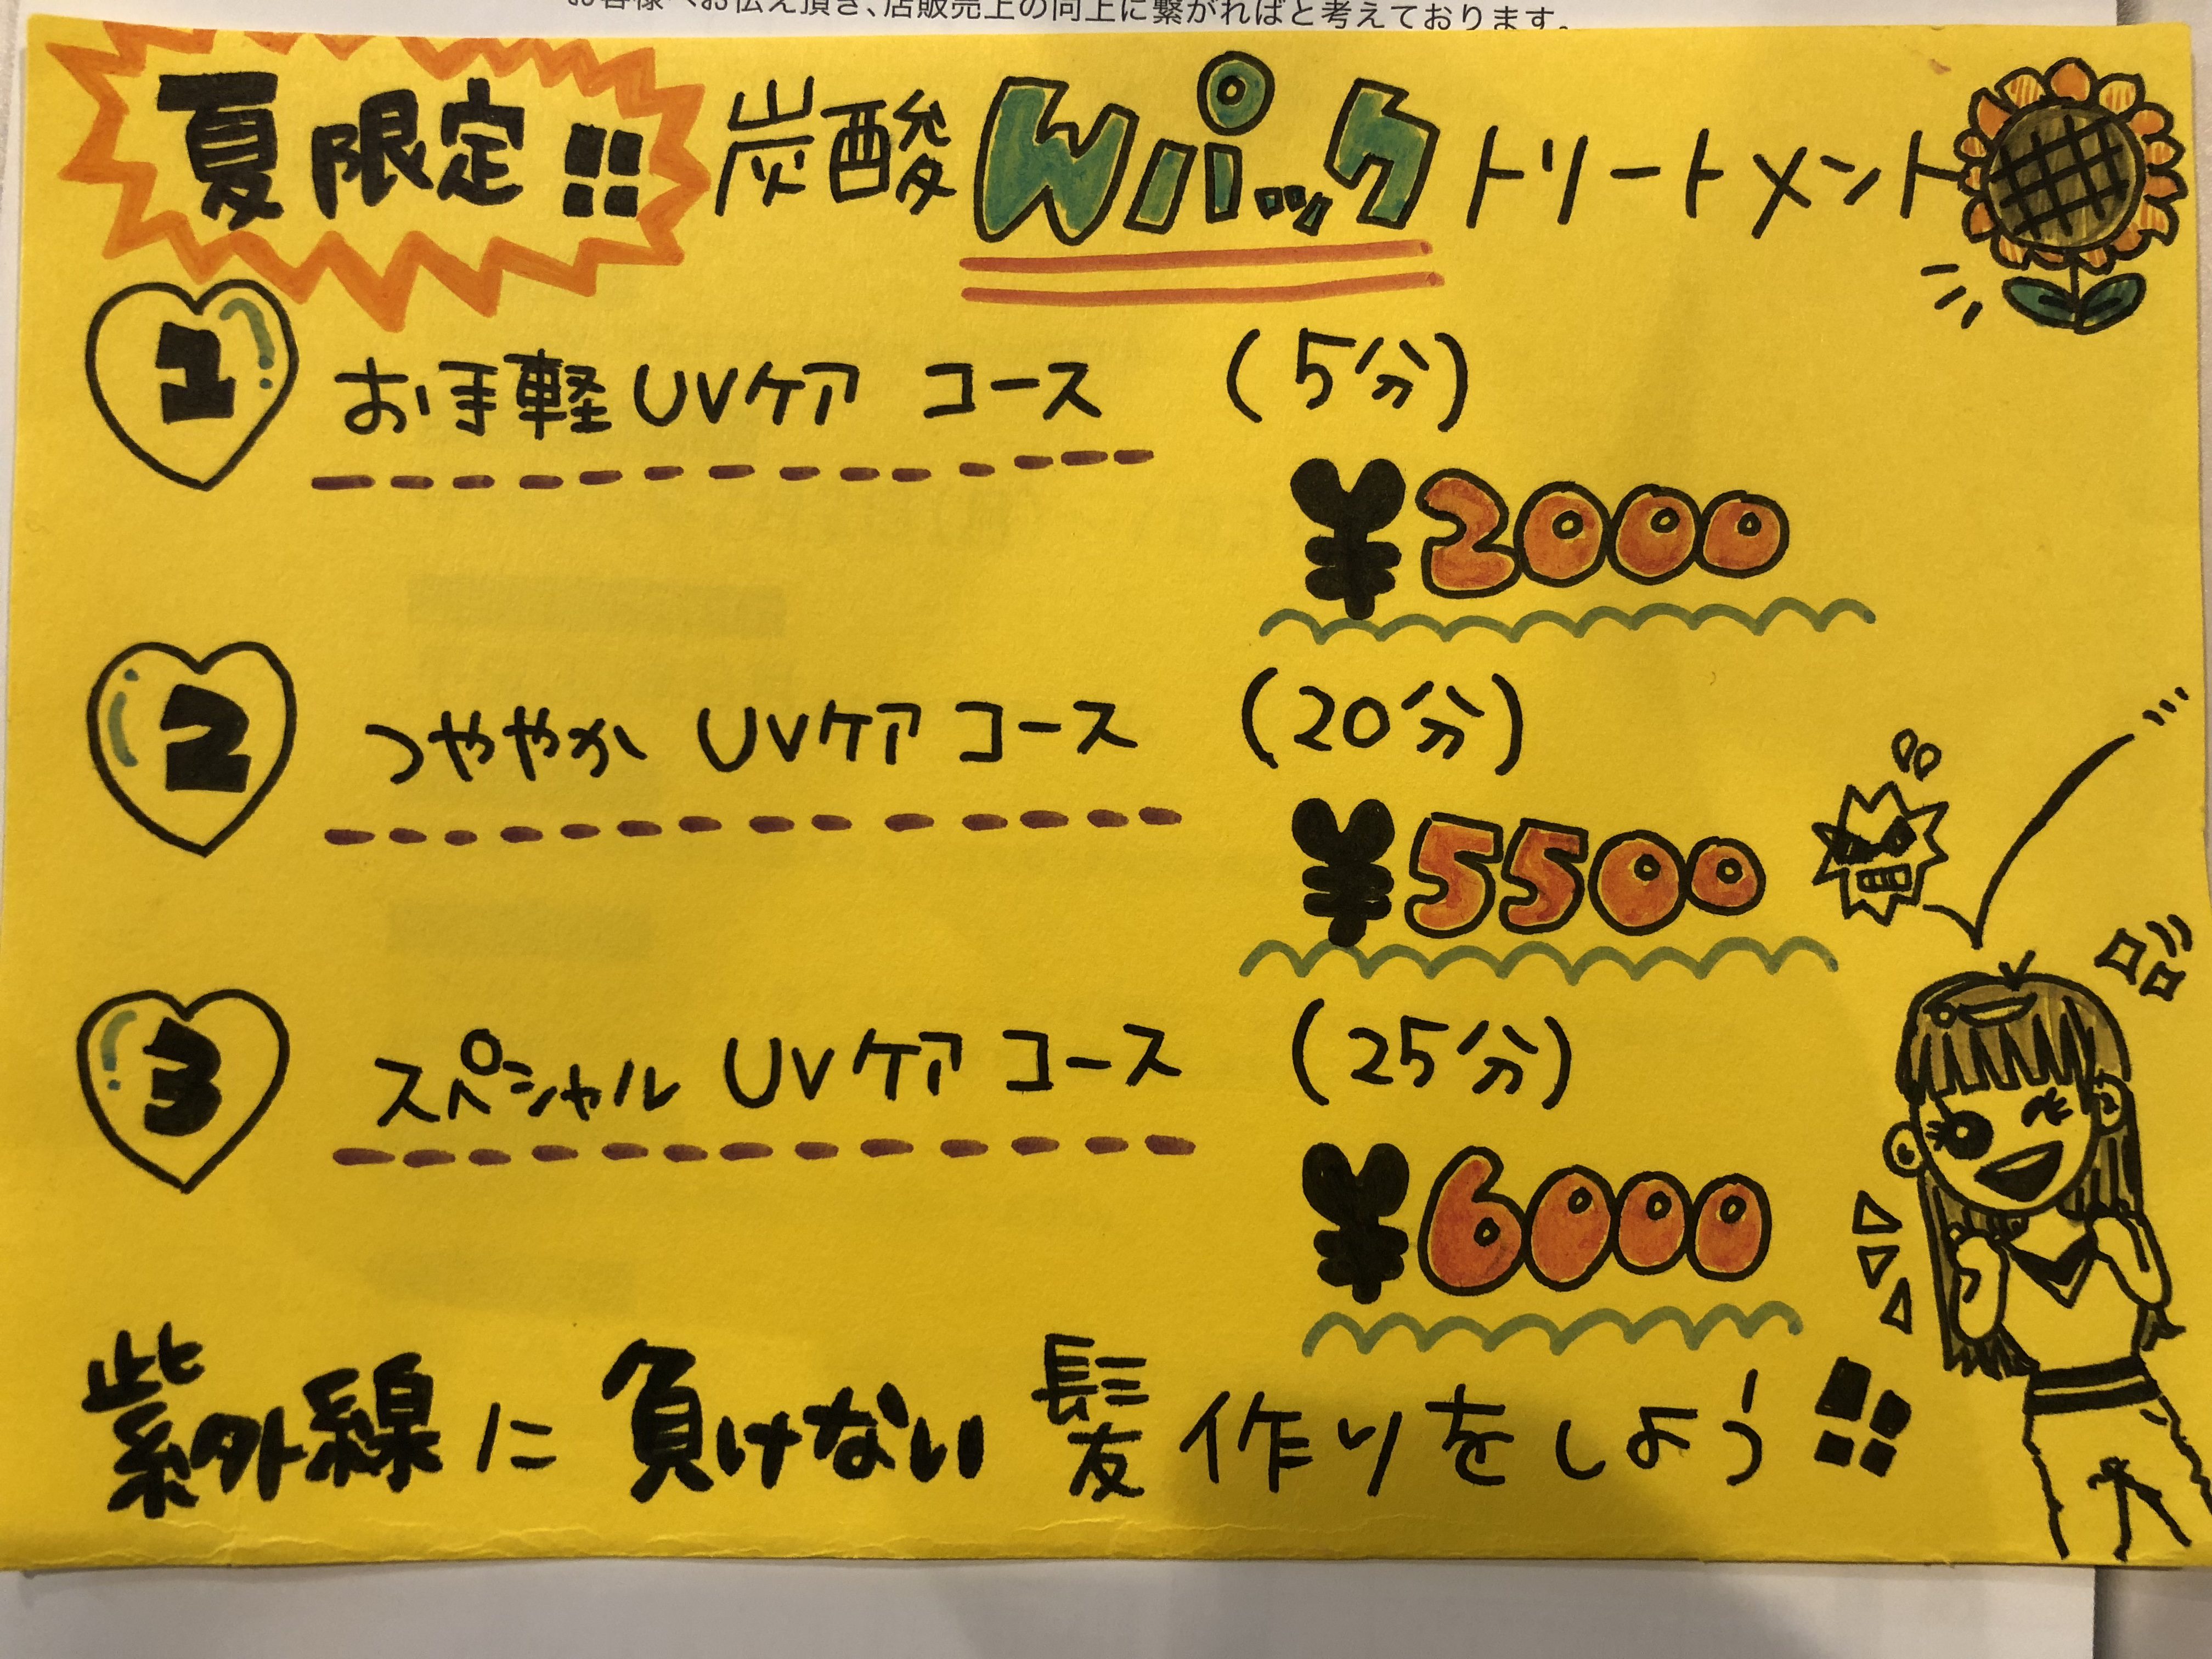 お客様へお伝え頂き、店販売上の向上に繋がればと考えております。
夏限定!! 炭酸Wパックトリートメント
1 お手軽UVケア コース (5分)
¥2000
2 つややか UVケア コース (20分)
¥5500
3 スペシャル UVケア コース (25分)
¥6000
紫外線に負けない髪作りをしよう!!